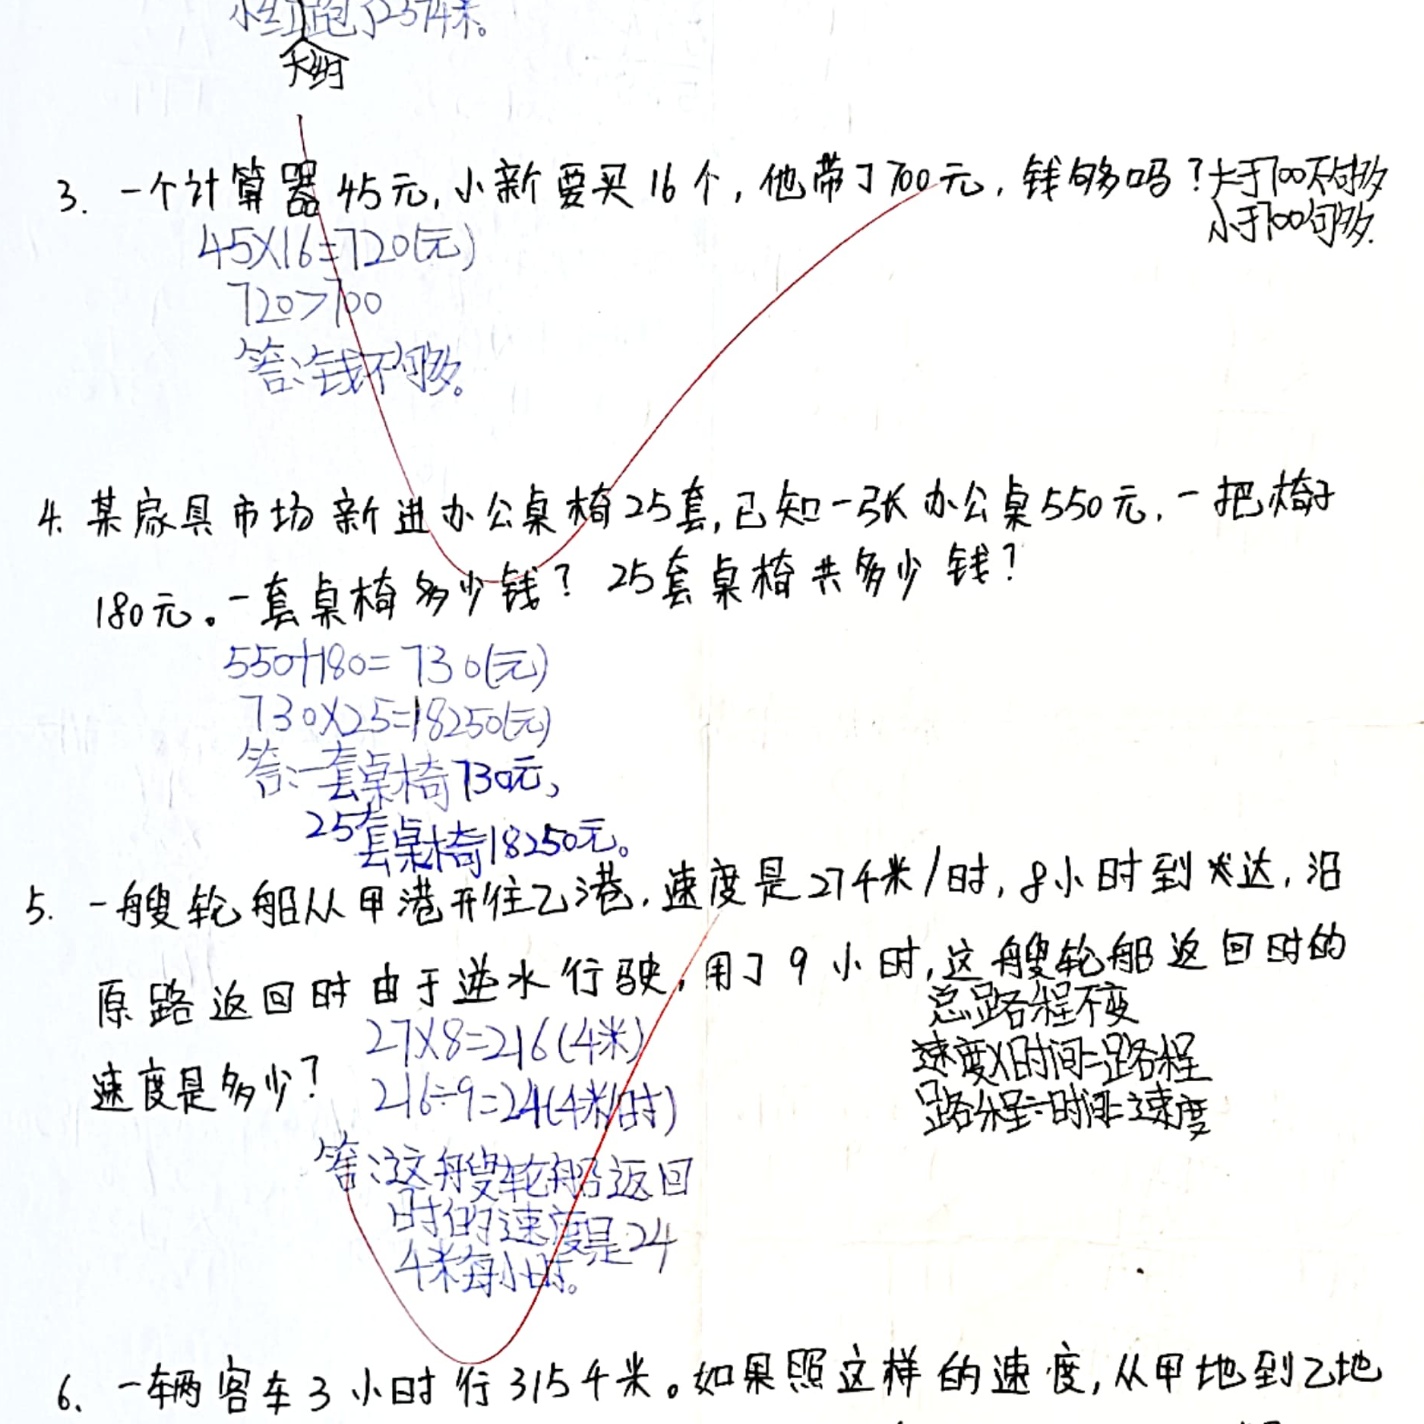 小红跑了2374米。
大约
3. 一个计算器45元,小新要买16个,他带了700元,钱够吗?大于700不够
小于700够
45×16=720(元)
720>700
答:钱不够。
4. 某家具市场新进办公桌椅25套,已知一张办公桌550元,一把椅子
180元。一套桌椅多少钱? 25套桌椅共多少钱?
550+180=730(元)
730×25=18250(元)
答:一套桌椅730元,
25套桌椅18250元。
5. 一艘轮船从甲港开往乙港,速度是27千米/时,8小时到达,沿
原路返回时由于逆水行驶,用了9小时,这艘轮船返回时的
总路程不变
速度是多少?
27×8=216(千米)
216÷9=24(千米/时)
速度×时间=路程
路程÷时间=速度
答:这艘轮船返回
时的速度是24
千米每小时。
6. 一辆客车3小时行315千米。如果照这样的速度,从甲地到乙地